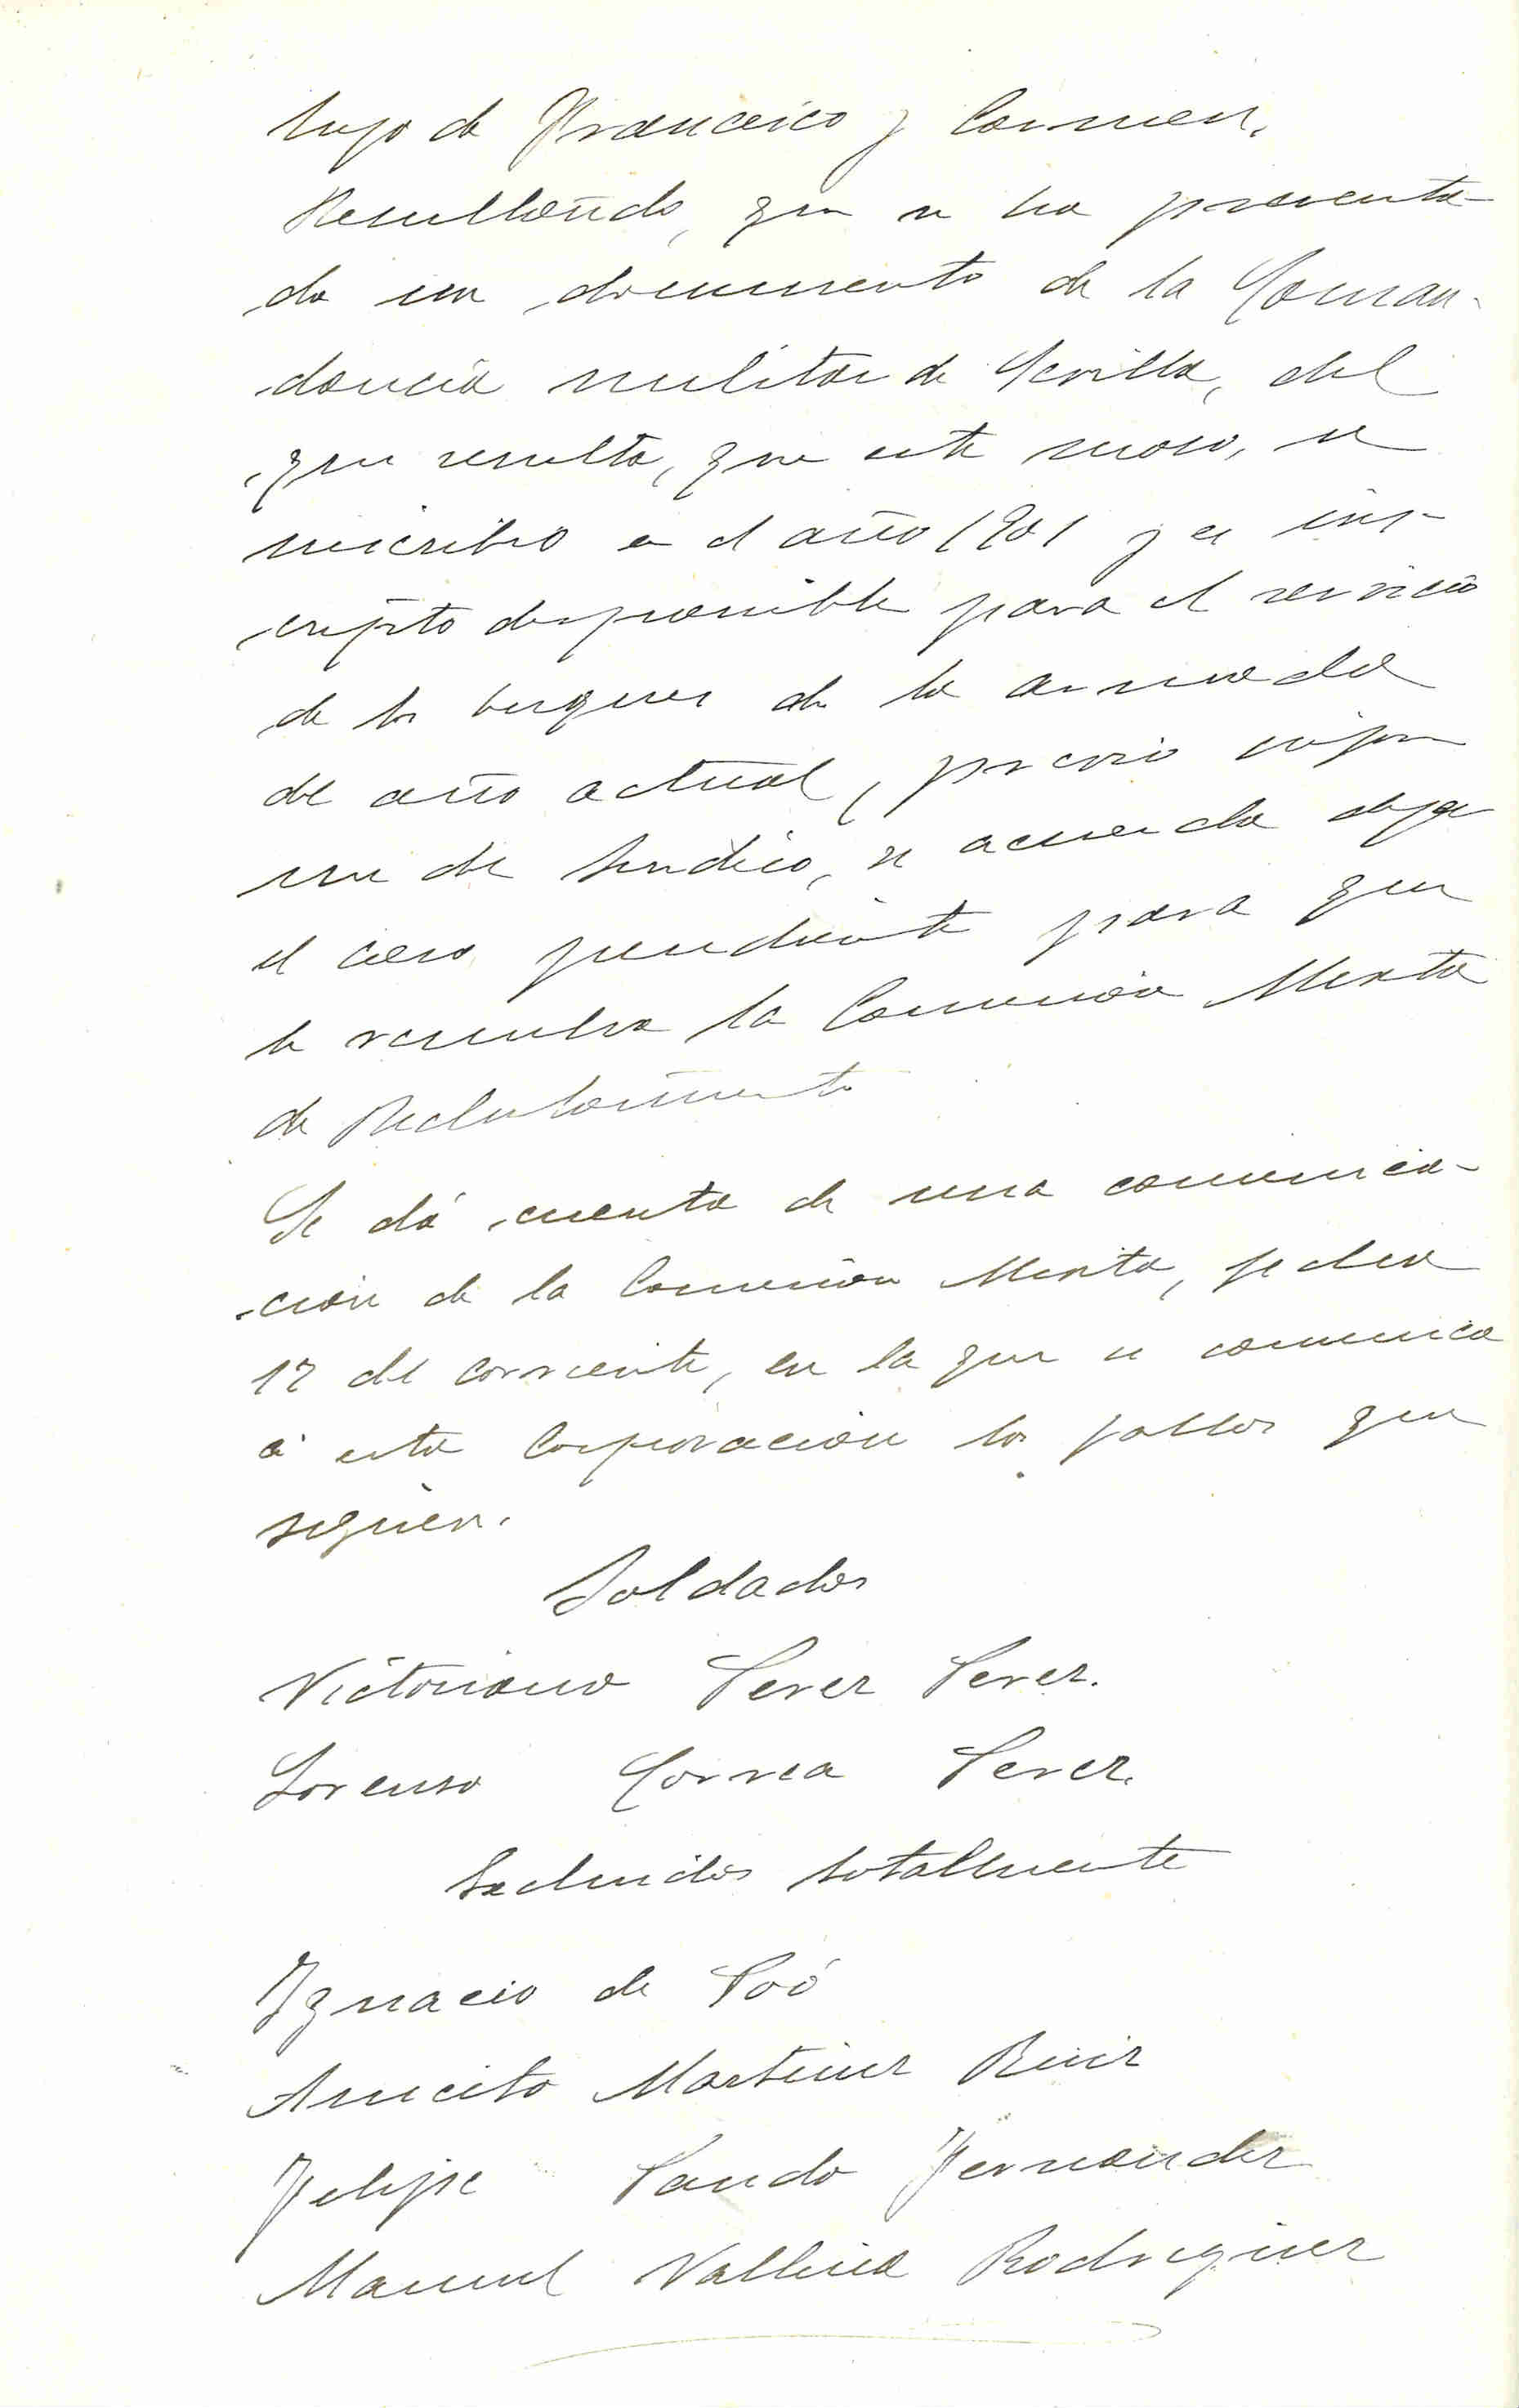 hijo de Francisco y Carmen.
Resultando, que se ha presenta-
do un documento de la Coman-
dancia militar de Sevilla, del
que resulta, que este mozo, se
inscribio en el año 1901 y es ins-
cripto disponible para el servicio
de los buques de la armada
del año actual, previo infor
me del Sindico, se acuerda dejar
el caso pendiente para que
lo resuelva la Comision Mixta
de Reclutamiento
Se dá cuenta de una comunica-
cion de la Comision Mixta, fecha
17 del corriente, en la que se comunica
á esta Corporacion los fallos que
siguen.
Soldados
Victoriano Perez Perez.
Lorenzo Correa Perez.
Excluidos totalmente
Ygnacio de Poó
Aniceto Martinez Ruiz
Felipe Pando Fernandez
Manuel Vallina Rodriguez